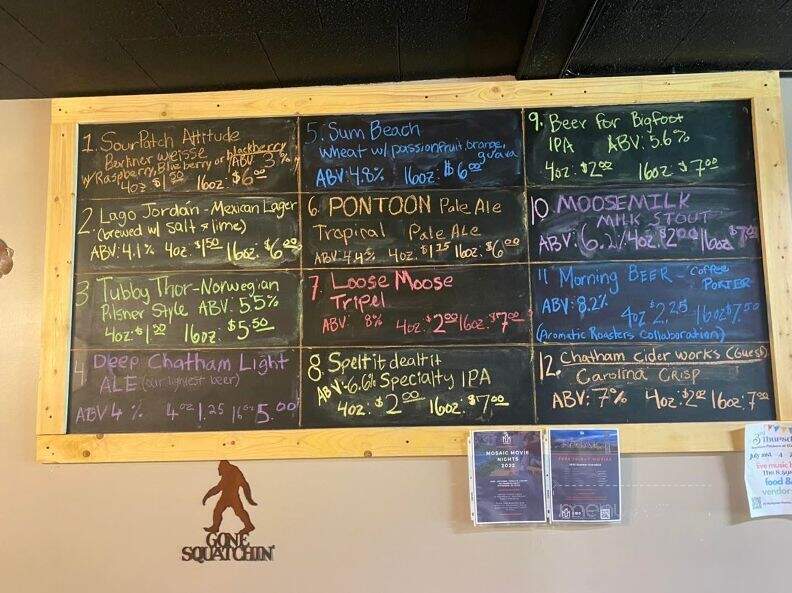 1. SourPatch Attitude
Berliner weisse
w/ Raspberry, Blueberry or blackberry
ABV 3 %
4oz $1 16oz: $6.00
2. Lago Jordán - Mexican Lager
(brewed w/ salt & lime)
ABV: 4.1% 4oz: $1.50 16oz: $6.00
3 Tubby Thor - Norwegian
Pilsner Style ABV: 5.5%
4oz: $1.00 16oz: $5.50
4. Deep Chatham Light
ALE (our lightest beer)
ABV 4 % 4oz 1.25 16oz 5.00
5. Sum Beach
wheat w/ passionfruit, orange,
guava
ABV: 4.8% 16oz: $6.00
6. PONTOON Pale Ale
Tropical Pale Ale
ABV: 4.4% 4oz: $1.25 16oz: $6.00
7. Loose Moose
Tripel
ABV: 8% 4oz: $2.00 16oz: $7.00
8. Spelt it dealt it
ABV: 6.6% Specialty IPA
4oz: $2.00 16oz: $7.00
9. Beer for Bigfoot
IPA ABV: 5.6%
4oz: $2.00 16oz: $7.00
10. MOOSEMILK
MILK STOUT
ABV: 6.2% 4oz: $2.00 16oz $7.00
11 Morning BEER - Coffee
PORTER
ABV: 8.2% 4oz $2.25 16oz $7.50
(Aromatic Roasters Collaboration)
12. Chatham Cider works (Guest)
Carolina Crisp
ABV: 7% 4oz: $2.00 16oz: 7.00
GONE
SQUATCHIN'
MOSAIC MOVIE
NIGHTS
2022
FREE FRIDAY MOVIES
3rd Thursday
live music
food &
vendor